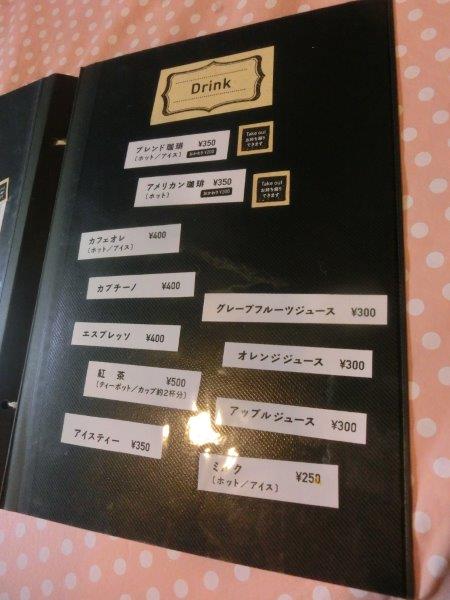 Drink
ブレンド珈琲 ¥350
(ホット/アイス) おかわり¥200
Take out
お持ち帰り
できます
アメリカン珈琲 ¥350
(ホット) おかわり¥200
Take out
お持ち帰り
できます
カフェオレ ¥400
(ホット/アイス)
カプチーノ ¥400
エスプレッソ ¥400
紅 茶 ¥500
(ティーポット/カップ約2杯分)
アイスティー ¥350
グレープフルーツジュース ¥300
オレンジジュース ¥300
アップルジュース ¥300
ミルク ¥250
(ホット/アイス)